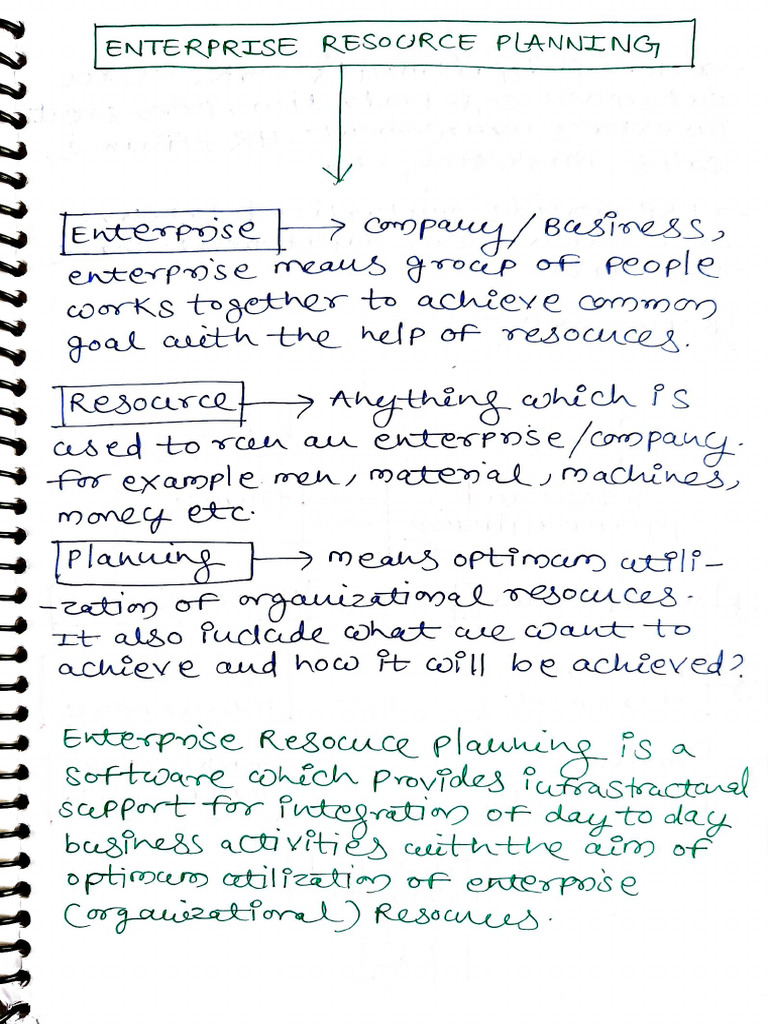 ENTERPRISE RESOURCE PLANNING
Enterprise → Company/Business,
enterprise means group of people
works together to achieve common
goal with the help of resources.
Resource → Anything which is
used to run an enterprise/company.
for example men, material, machines,
money etc.
Planning → means optimum utili-
-zation of organizational resources.
It also include what we want to
achieve and how it will be achieved?
Enterprise Resource planning is a
software which provides infrastractural
support for integration of day to day
business activities with the aim of
optimum utilization of enterprise
(organizational) Resources.